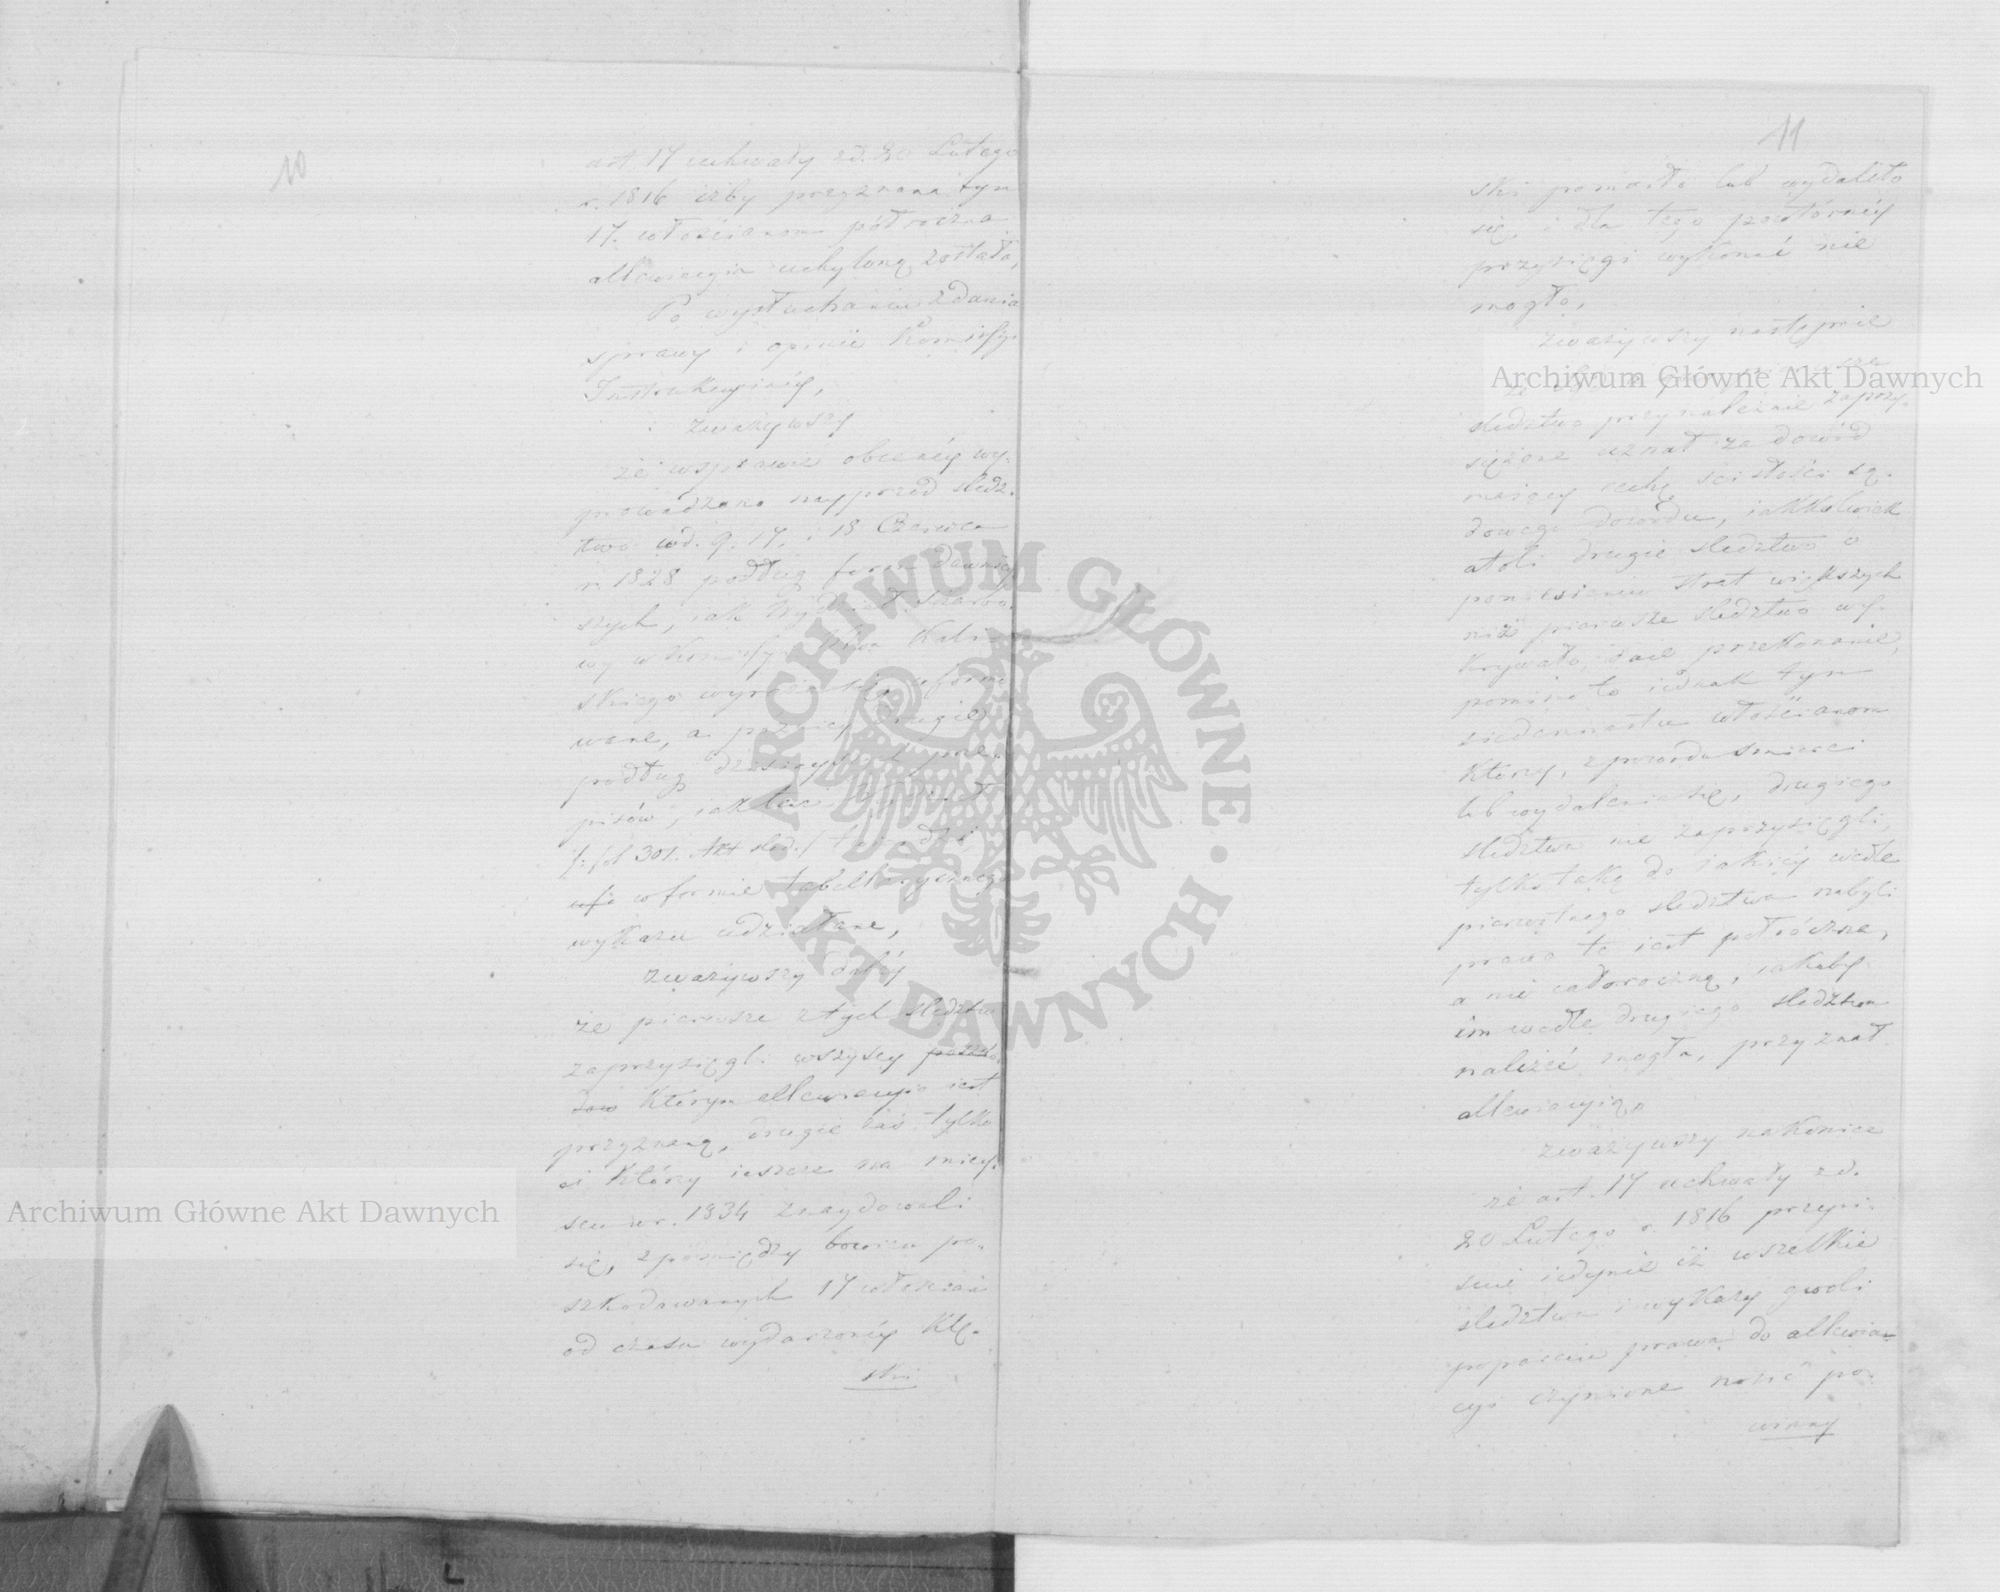 10
art. 17 uchwały z d. 20 Lutego
r. 1816 iżby przyznana tym
17. włościanom półroczna
allewiacyia uchyloną została,
Po wysłuchaniu zdania
sprawy i opinii Kommissyi
Instrukcyinéy,
zważywszy
że w sprawie obecnéy wy-
prowadzono nayprzód śledz-
two w d. 9. 17. i 18 Czerwca
r. 1828 podług form dawniéy
szych, iak Wydział Skarbo-
wy w Kommissyi Kali-
skiego wyraził się, uformo
wane, a późniéy drugie
podług dzisieyszych prze-
pisów, iak tenże Wydział
/: fol 301. Akt śled. /
w formie tabellarycznego
wykazu udziałane,
zważywszy daléy
że pierwsze z tych śledztw
zaprzysięgli wszyscy
którym allewiacyia iest
przyznaną, drugie zaś tylko
ci którzy ieszcze na miey-
scu w r. 1834 znaydowali
się, z pomiędzy bowiem po-
szkodowanych 17 włościan
od czasu wydarzonéy klę-
ski
11
ski pomarło lub wydaliło
się, i dla tego powtórnéy
przysięgi wykonać nie
mogło,
zważywszy następnie
śledztwo przynależnie zaprzy-
siężone uznał za dowód
maiący cechę ścisłości są-
dowego dowodu, iakkolwiek
atoli drugie śledztwo o
poniesieniu strat większych
niż pierwsze śledztwo wy-
krywało, dało przekonanie,
pomimo to iednak tym
siedemnastu włościanom
którzy, z powodu śmierci
lub wydalenia się, drugiego
śledztwa nie zaprzysięgli,
tylko takę do iakiéy wedle
pierwszego śledztwa nabyli
prawo to iest półroczne,
a nie całoroczną, iakaby
im wedle drugiego śledztwa
należéć mogła, przyznał
allewiacyią,
zważywszy nakoniec
że art. 17 uchwały z d.
20 Lutego r. 1816 przepi-
suie iedynie iż wszelkie
śledztwa i wykazy gwoli
poparcia prawa do allewia-
cyi czynione nosić po-
winny
Archiwum Główne Akt Dawnych
Archiwum Główne Akt Dawnych
ARCHIWUM GŁÓWNE
AKT DAWNYCH